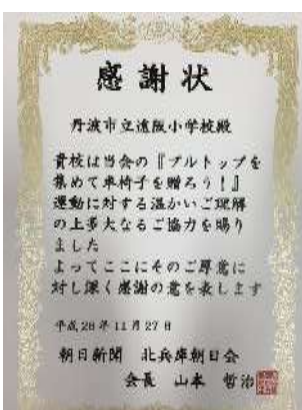 感謝状
丹波市立遠阪小学校殿
貴校は当会の『プルトップを
集めて車椅子を贈ろう!』
運動に対する温かいご理解
の上多大なるご協力を賜り
ました
よってここにそのご厚意に
対し深く感謝の意を表します
平成28年11月27日
朝日新聞 北兵庫朝日会
会長 山本 哲治